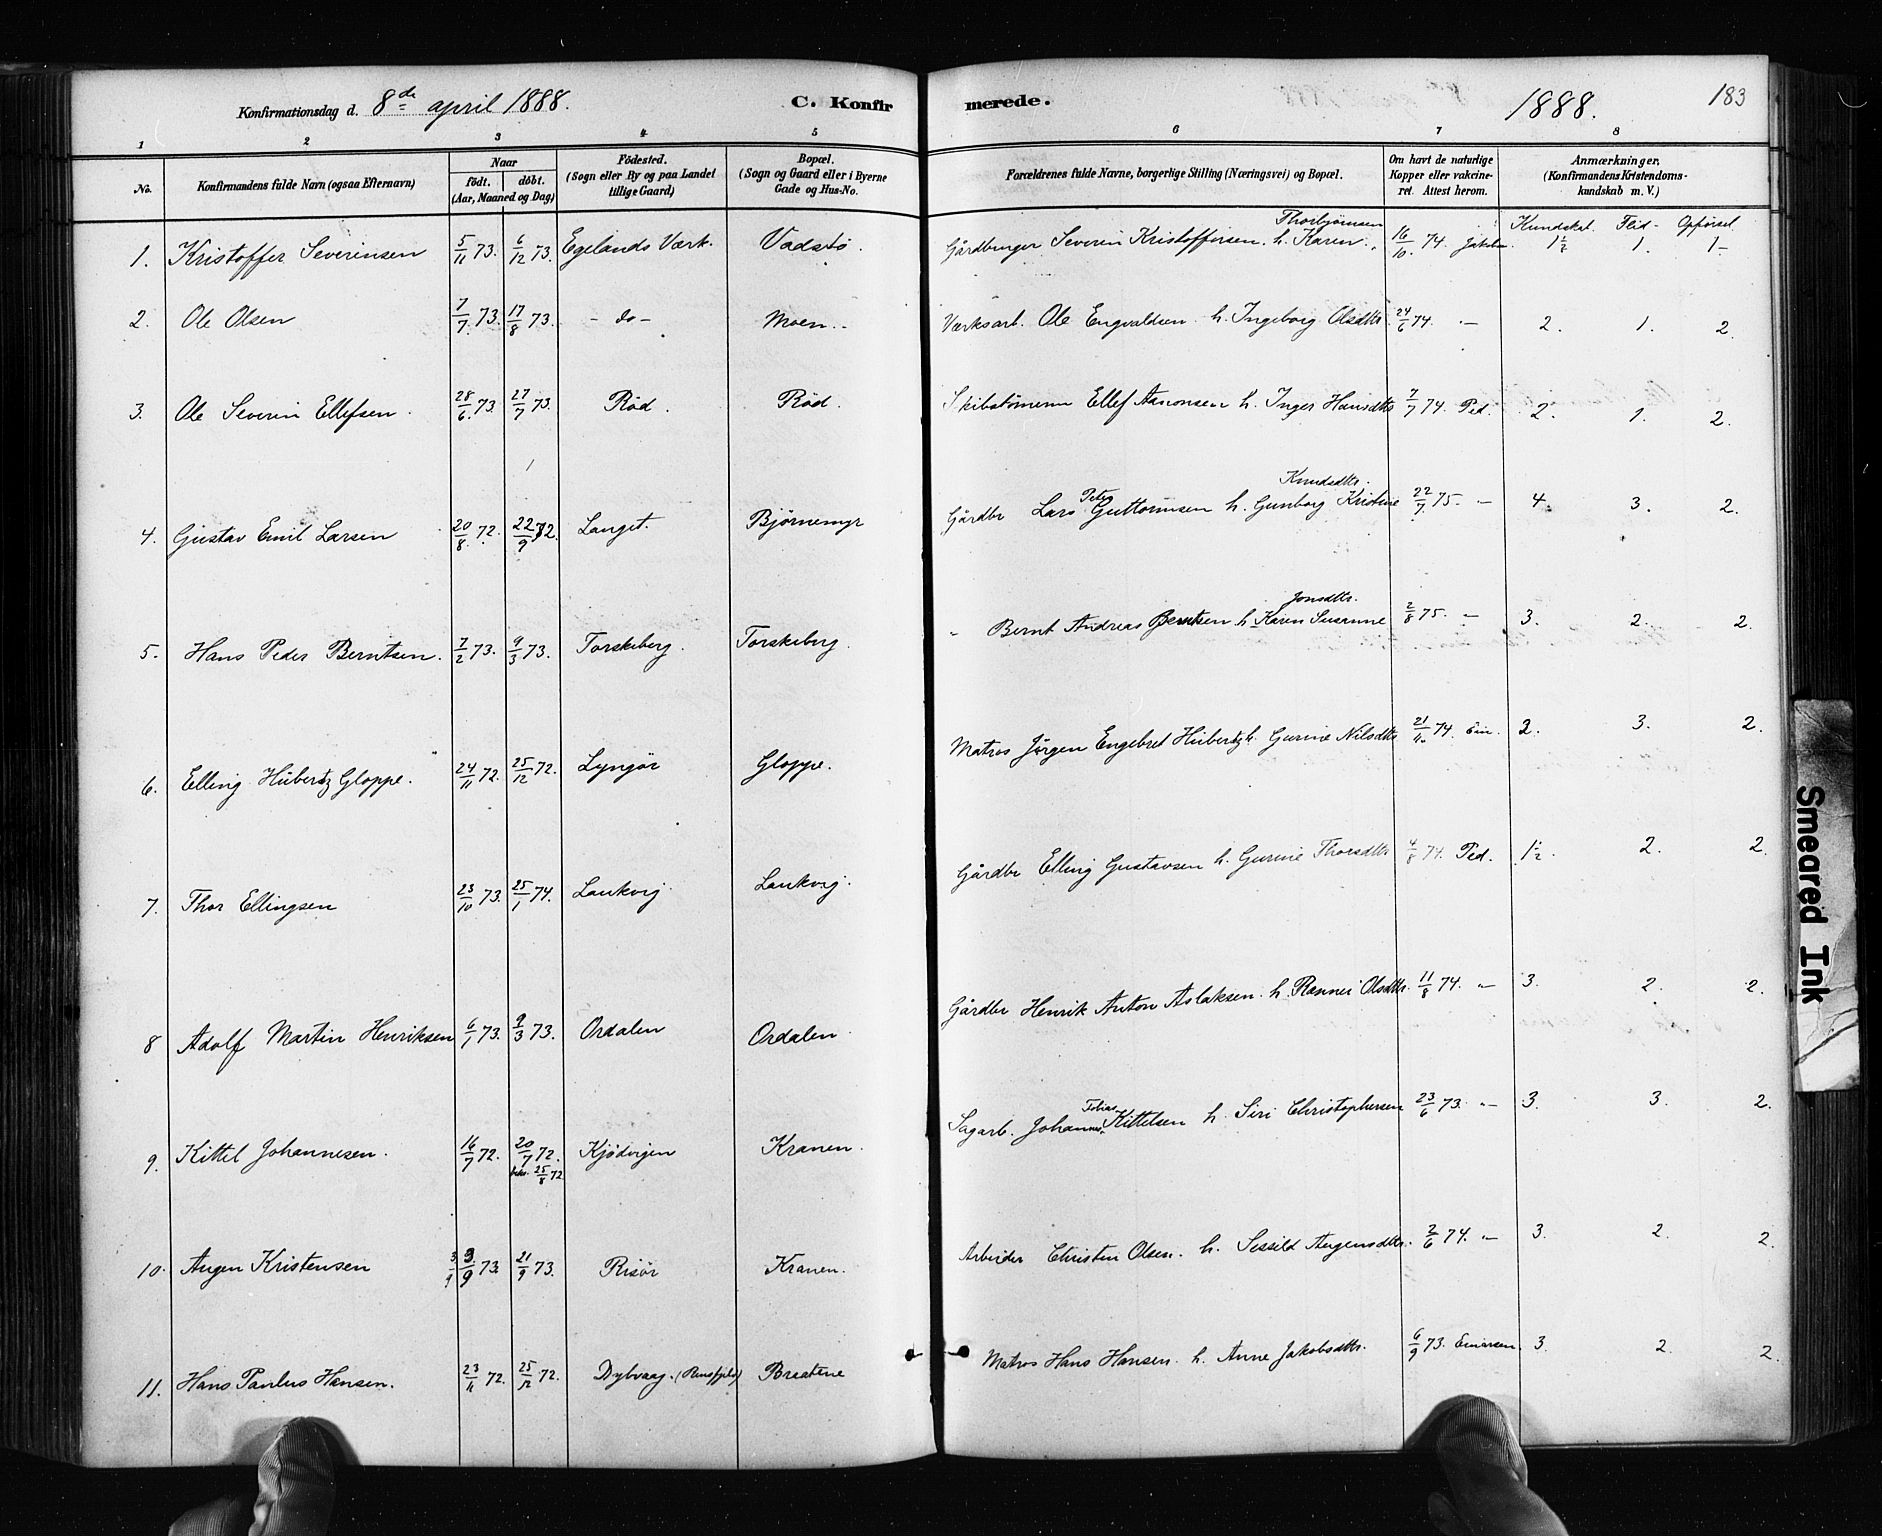 Konfirmationsdag d. 8de april 1888. C. Konfirmerede. 1888. 183
1 2 3 4 5 6 7 8
No. Konfirmandens fulde Navn (ogsaa Efternavn) Naar født. døbt. (Aar, Maaned og Dag) Fødested. (Sogn eller By og paa Landet tillige Gaard) Bopæl. (Sogn og Gaard eller i Byerne Gade og Hus-No. Forældrenes fulde Navne, borgerlige Stilling (Næringsvei) og Bopæl. Om havt de naturlige Kopper eller vakcineret. Attest herom. Anmærkninger. (Konfirmandens Kristendomskundskab m. V.)
Kundskab. Flid - Opførsel
1. Kristoffer Severinsen 5/11 73. 6/12 73. Egelands Værk. Vadstø. Gårdbruger Severin Kristoffersen. h. Karen Thorbjørnsen 16/10 74 1 1/2 1. 1-
2. Ole Olsen 7/7 73. 17/8 73. - do - Moen. Værksarb. Ole Engvaldsen h. Ingeborg Olsdtr. 24/6 74. " 2. 1. 2
3. Ole Severin Ellefsen. 28/6 73. 27/7 73. Rød. Rød. Skibstømerm Ellef Aaronsen h. Inger Hansdtr 7/7 74. Ped. 2. 1. 2.
4. Gustav Emil Larsen 20/8 72. 22/9 72. Langet. Bjørnemyr Gårdbr Lars Peter Guttormsen h. Gunborg Kristine Knudsdtr. 22/7 75. " 4. 3. 2.
5. Hans Peder Berntsen. 7/2 73. 9/3 73. Torskeberg. Torskeberg. " Bernt Andreas Berntsen h. Karen Susanne Jonsdtr. 2/8 75. " 3. 2. 2.
6. Elling Hübertz Gloppe. 24/11 72. 25/12 72. Lyngør Gloppe. Matros Jørgen Engebret Hübertz h. Gurine Nilsdtr 21/11 74. Ein. 2. 3. 2.
7. Thor Ellingsen 23/10 73. 25/1 74. Laukvig Laukvig. Gårdbr Elling Gustavsen h. Gurine Thorsdtr 4/8 74. Ped. 1 1/2. 2. 2.
8 Adolf Martin Henriksen 6/1 73. 9/3 73. Ordalen Ordalen Gårdbr Henrik Anton Aslaksen. h. Rønnei Olsdtr. 11/8 74. " 3. 2. 2.
9. Kittel Johannesen. 16/7 72. 20/7 72. 25/8 72 Kjødvigen Kranen. Sagarb. Johannes Tobias Kittelsen h. Siri Christophersen 23/6 73. " 3. 3. 2.
10. Augen Kristensen 3/9 3/9 73. 21/9 73. Risør Kranen. Arbeider Christen Olsen. h. Sissild Augensdtr. 2/6 74. " 3. 2. 2.
11. Hans Paulus Hansen. 23/11 72. 25/12 72. Dybvaag. Braatene Matros Hans Hansen. h. Anne Jakobsdtr. 6/9 73. Einarsen 3. 2. 2.
Smeared Ink